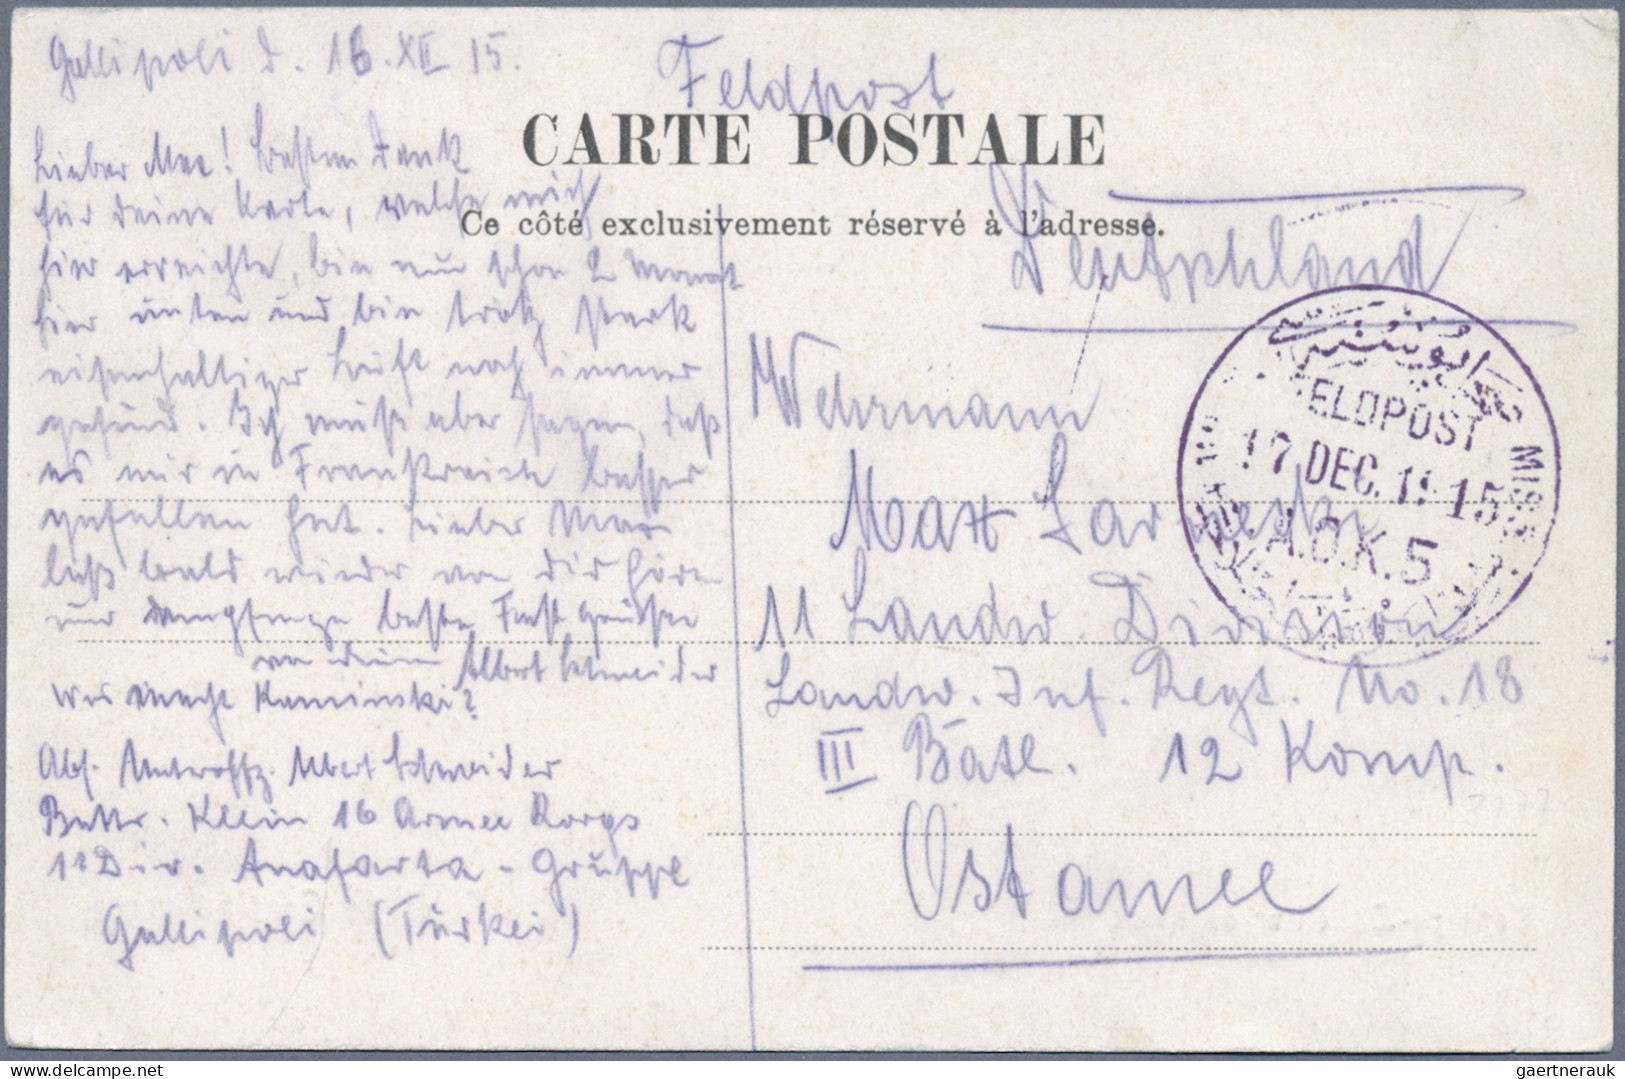 Gallipoli d. 16.XII 15.
Feldpost
CARTE POSTALE
Ce côté exclusivement réservé à l'adresse.
Lieber Max! Besten Dank
für deine Karte, welche mich
hier erreichte, bin nun schon 2 Monat
hier unten und bin trotz stark
eisenhaltiger Luft noch immer
gesund. Ich muß aber sagen, daß
es mir in Frankreich besser
gefallen hat. Lieber Max
laß bald wieder von dir hören
nur empfange beste Festgrüße
von deinem Albert Schneider
Was macht Kaminski?
Abs. Unteroffz. Albert Schneider
Battr. Klein 16 Armee Korps
11 Div. Anafarta-Gruppe
Gallipoli (Türkei)
Deutschland
Wehrmann
Max
11 Landw. Division
Landw. Inf. Regt. No. 18
III Batl. 12 Komp.
Ostamee
FELDPOST
17 DEC. 1915
A.O.K. 5
gaertnerauk